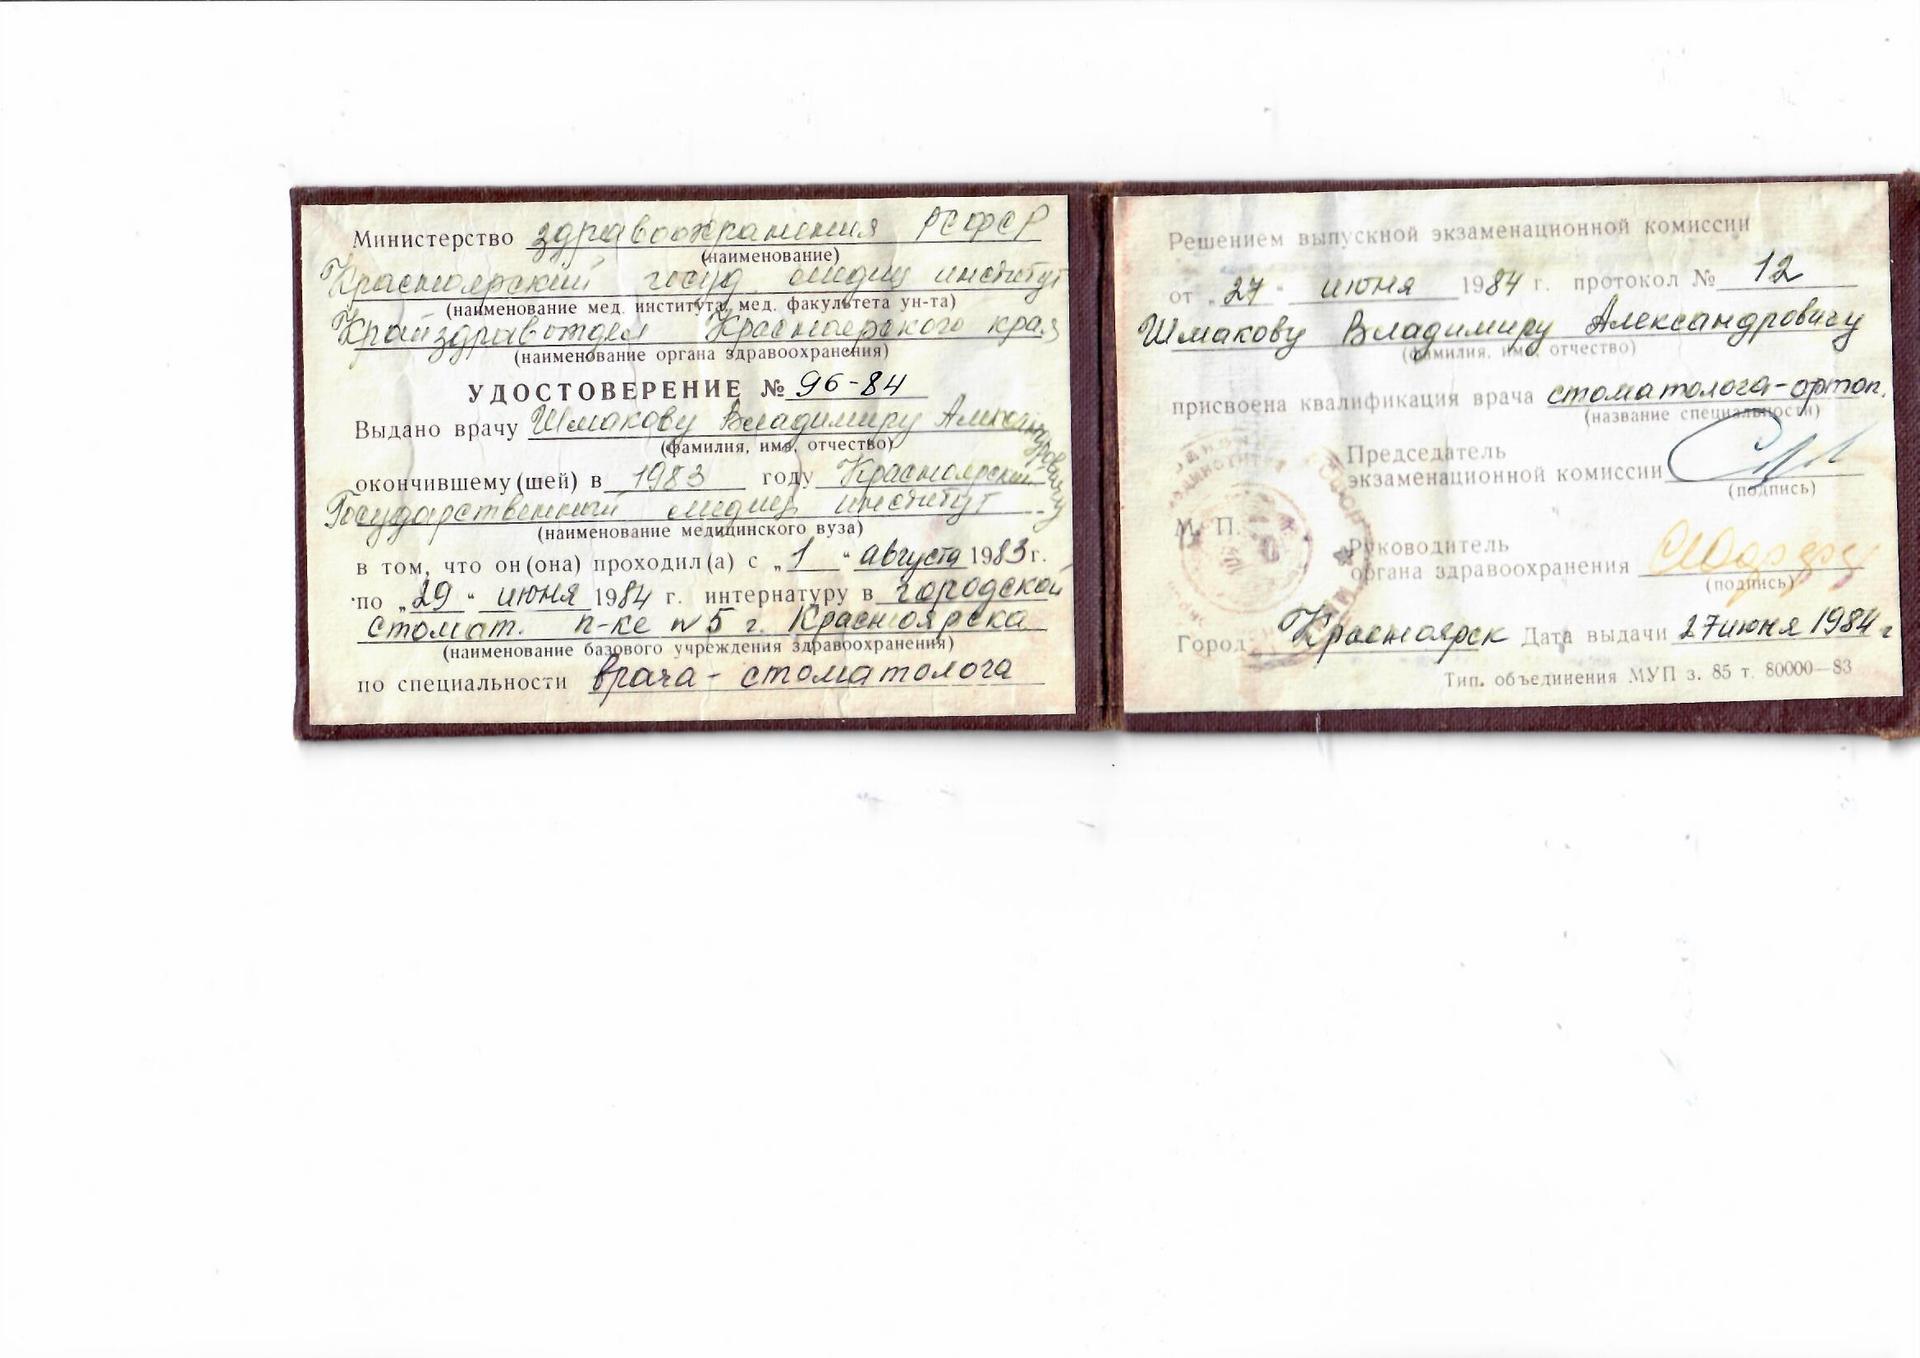 Министерство здравоохранения РСФСР
(наименование)
Красноярский госуд. медиц институт
(наименование мед. института, мед. факультета ун-та)
Крайздравотдел Красноярского края
(наименование органа здравоохранения)
УДОСТОВЕРЕНИЕ № 96-84
Выдано врачу Шмакову Владимиру Александровичу
(фамилия, имя, отчество)
окончившему(шей) в 1983 году Красноярский
Государственный медиц институт
(наименование медицинского вуза)
в том, что он(она) проходил(а) с „1" августа 1983 г.
по „29" июня 1984 г. интернатуру в городской
стомат. п-ке N 5 г. Красноярска
(наименование базового учреждения здравоохранения)
по специальности врача-стоматолога
Решением выпускной экзаменационной комиссии
от „27" июня 1984 г. протокол № 12
Шмакову Владимиру Александровичу
(фамилия, имя, отчество)
присвоена квалификация врача стоматолога-ортоп.
(название специальности)
Председатель
экзаменационной комиссии
(подпись)
М. П.
Руководитель
органа здравоохранения
(подпись)
Город Красноярск Дата выдачи 27 июня 1984 г
Тип. объединения МУП з. 85 т. 80000—83